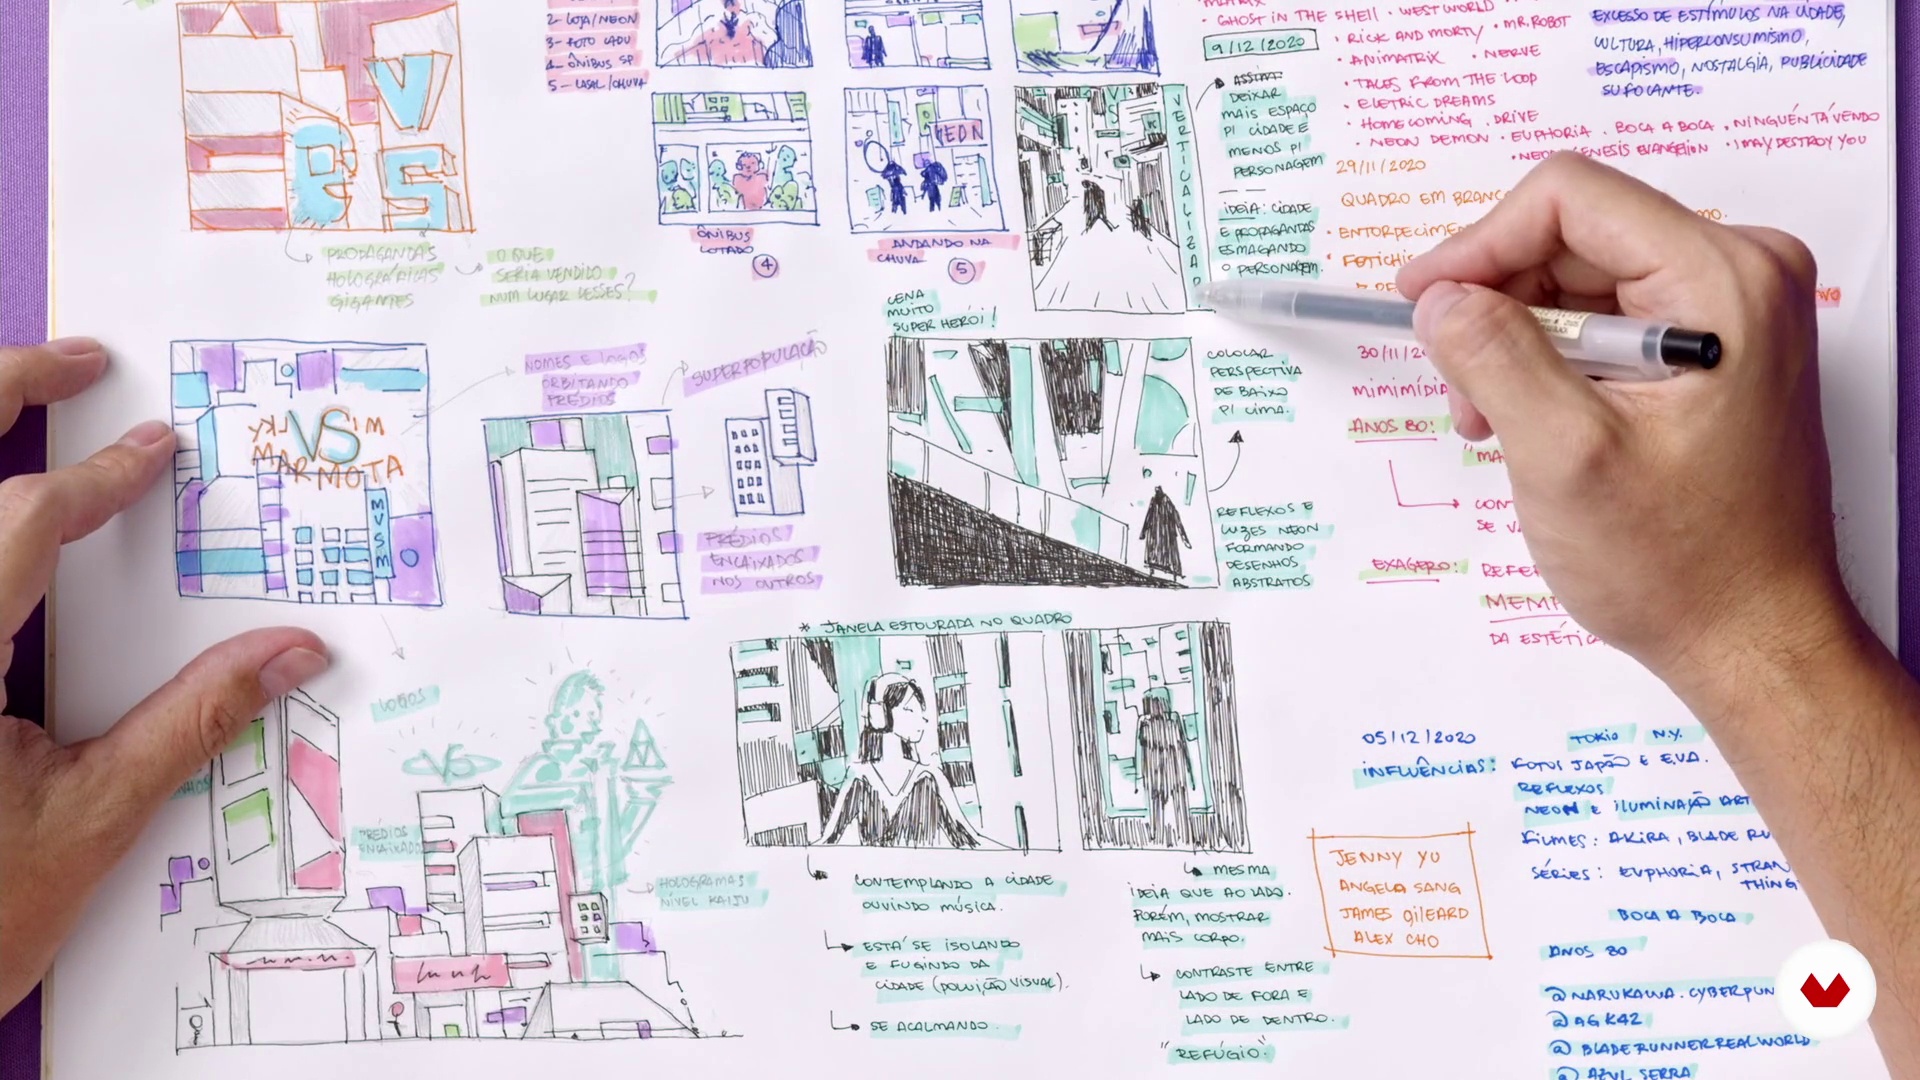 2- LOJA/NEON
3- FOTO CADU
4- ÔNIBUS SP
5- CASAL/CHUVA
MATRIX
• GHOST IN THE SHELL • WEST WORLD
• RICK AND MORTY • MR. ROBOT
• ANIMATRIX • NERVE
• TALES FROM THE LOOP
• ELETRIC DREAMS
• HOMECOMING . DRIVE
• NEON DEMON • EUPHORIA . BOCA A BOCA . NINGUÉN TÁ VENDO
• NEON GENESIS EVANGELION • I MAY DESTROY YOU
EXCESSO DE ESTÍMULOS NA CIDADE,
CULTURA, HIPERCONSUMISMO,
ESCAPISMO, NOSTALGIA, PUBLICIDADE
SUFOCANTE.
9/12/2020
DEIXAR
MAIS ESPAÇO
P/ CIDADE E
MENOS P/
PERSONAGEM
IDEIA: CIDADE
E PROPAGANDAS
ESMAGANDO
O PERSONAGEM.
29/11/2020
QUADRO EM BRANCO
• ENTORPECIME
• FETICHIS
VS
VS
NEON
ÔNIBUS
LOTADO
4
ANDANDO NA
CHUVA
5
PROPAGANDAS
HOLOGRÁFICAS
GIGANTES
O QUE
SERIA VENDIDO
NUM LUGAR DESSES?
CENA
MUITO
SUPER HERÓI!
COLOCAR
PERSPECTIVA
DE BAIXO
P/ CIMA.
REFLEXOS E
LUZES NEON
FORMANDO
DESENHOS
ABSTRATOS
30/11/2
MIMIMÍDIA
ANOS 80:
"MA
CON
SE V
EXAGERO:
REFER
MEMP
DA ESTÉTICA
NOMES E LOGOS
ORBITANDO
PRÉDIOS
SUPERPOPULAÇÃO
VS
MARMOTA
MVSM
PRÉDIOS
ENCAIXADOS
NOS OUTROS
* JANELA ESTOURADA NO QUADRO
LOGOS
VS
PRÉDIOS
ENCAIXADO
HOLOGRAMAS
NÍVEL KAIJU
CONTEMPLANDO A CIDADE
OUVINDO MÚSICA.
ESTÁ SE ISOLANDO
E FUGINDO DA
CIDADE (POLUIÇÃO VISUAL).
SE ACALMANDO.
MESMA
IDEIA QUE AO LADO.
PORÉM, MOSTRAR
MAIS CORPO.
CONTRASTE ENTRE
LADO DE FORA E
LADO DE DENTRO.
"REFÚGIO."
JENNY YU
ANGELA SANG
JAMES GILEARD
ALEX CHO
05/12/2020
TOKIO N.Y.
INFLUÊNCIAS: FOTOS JAPÃO E EVA.
REFLEXOS
NEON E ILUMINAÇÃO ART
FILMES: AKIRA, BLADE RU
SÉRIES: EUPHORIA, STRAN
THING
BOCA A BOCA
ANOS 80
@NARUKAWA.CYBERPUN
@AGK42
@BLADERUNNERREALWORLD
@AZUL SERRA